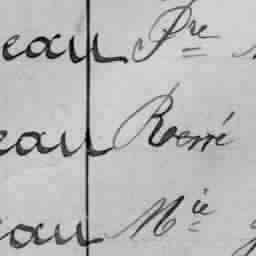 eau Pre
eau Roerré
eau Mie